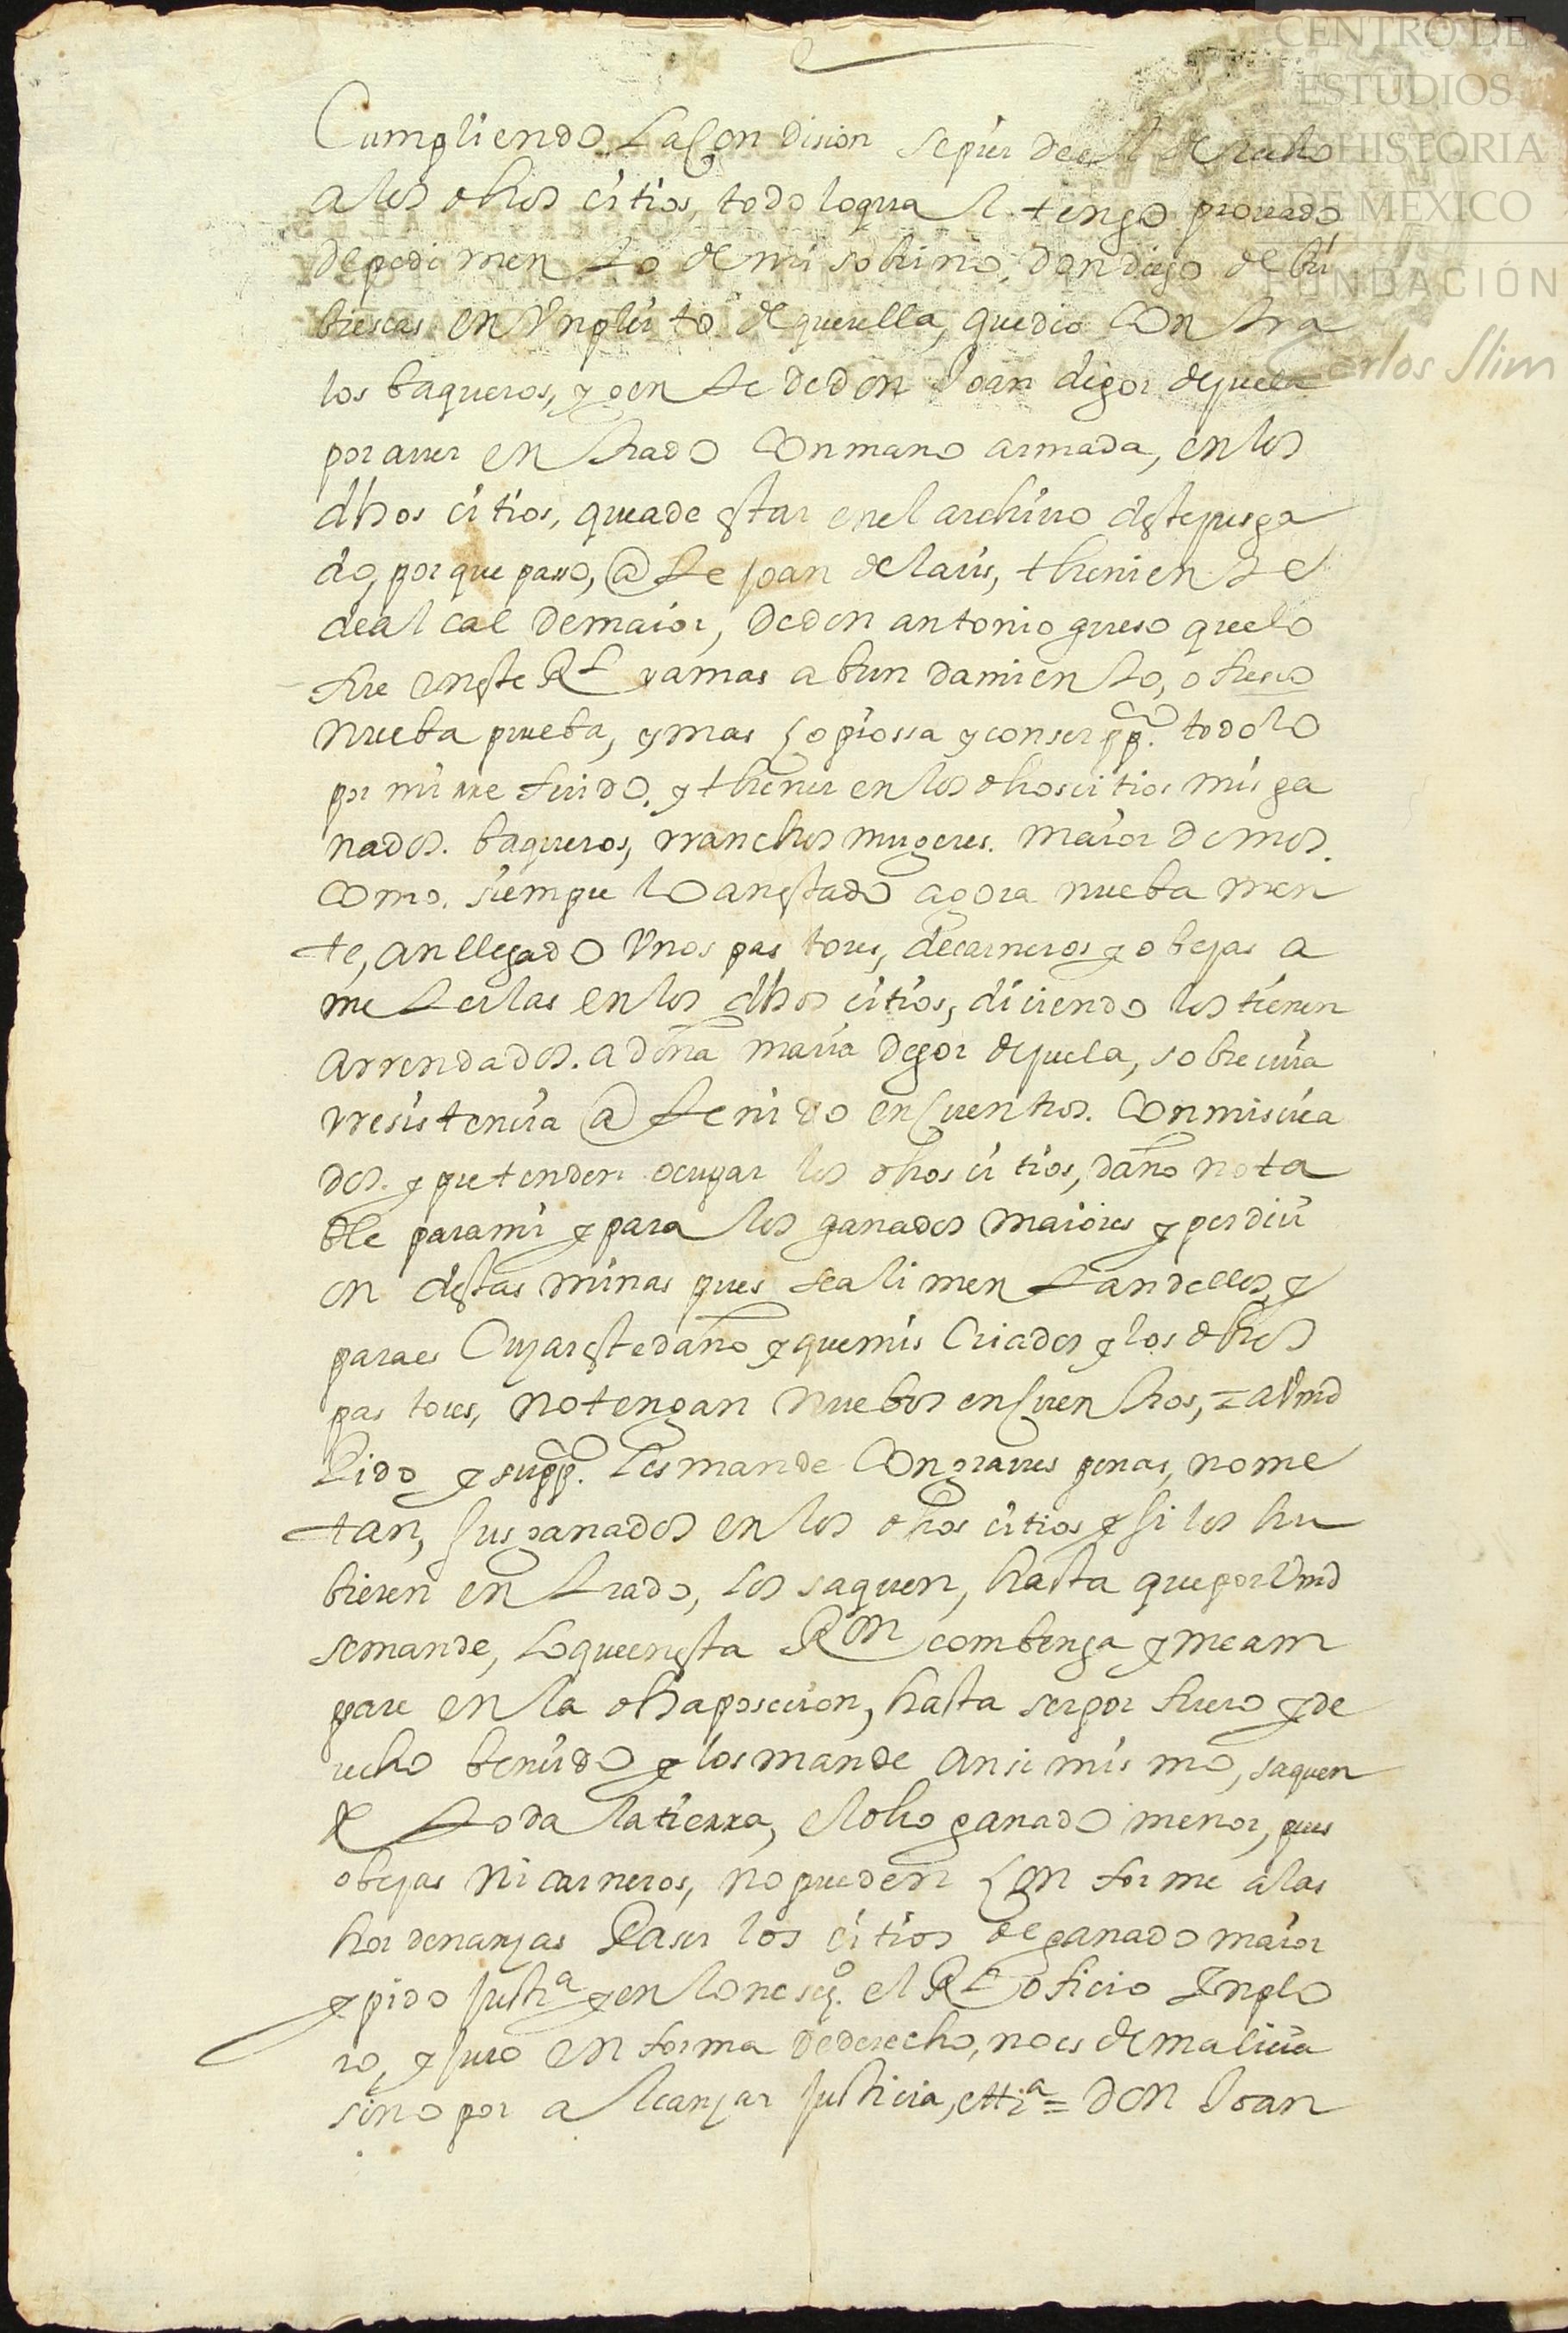 CENTRO DE
ESTUDIOS
DE HISTORIA
DE MEXICO
FUNDACIÓN
Carlos Slim
Cumpliendo La Condision
a los dhos citios, todo loqual tengo prouado
de pedimento de mi sobrino, don diego de bri
biescas en Vn pleito de querella, que dio Contra
los baqueros, y gente de don Joan degor dejuela
por auer entrado Con mano armada, en los
dhos citios, que a de estar en el archiuo deste jusga
do, porque passo, ante Joan de laris, theniente
de alcalde maior, de don antonio queelo
fue en este Rl y a mas abundamiento, ofresco
nueba prueba, y mas Copiossa y con ser pp.co todo lo
por mi rreferido. y thener en los dhos citios mis ga
nados. baqueros, rranchos mugeres. maiordomos.
Como. siempre Lo an estado agora nueba men
te, an llegado Vnos pastores, de carneros y obejas a
meterlas en los dhos citios, diciendo los tienen
arrendados. a doña maria degor dejuela, sobre cuia
rresistencia an tenido enCuentros. Con mis cria
dos. y pretenden ocupar los dhos citios, daño nota
ble para mi y para los ganados maiores y perdici
on destas minas pues se alimentan dellos, y
para escusar este daño y que mis Criados y los dhos
pastores, no tengan nuebos enCuentros, = a Vmd
Pido y supp.co Les mande Con graues penas, no me
tan, sus ganados en los dhos citios y si los hu
bieren entrado, los saquen, hasta que por Vmd
se mande, Lo que en esta Ron combenga y me am
pare en la dha poscecion, hasta ser por fuero y de
recho bencido y los mande ansimismo, saquen
de toda la tierra, el dho ganado menor, pues
obejas ni carneros, no pueden Conforme a las
hordenanzas Paser los citios de ganado maior
y pido justia y en lo neseo. el Rl oficio Ynplo
ro, y juro en forma de derecho, no es de malicia
sino por alcanzar justicia, ettra = Don Joan